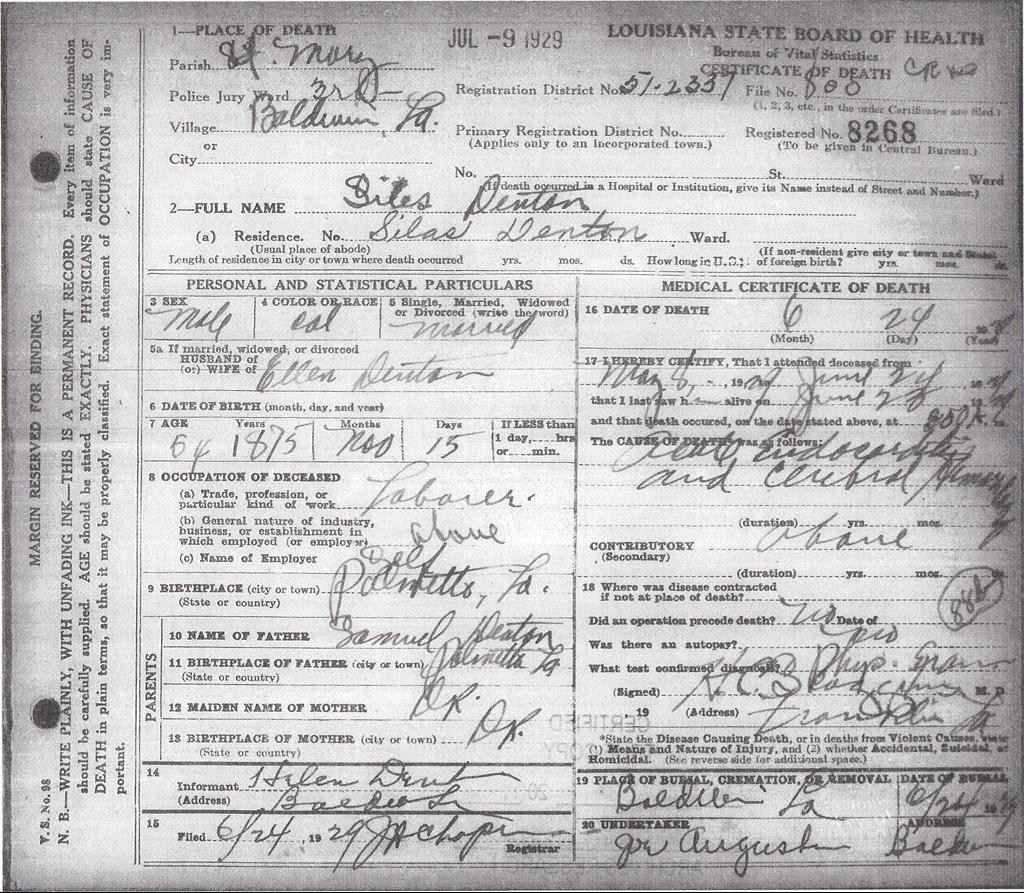 LOUISIANA STATE BOARD OF HEALTH
Bureau of Vital Statistics
CERTIFICATE OF DEATH
JUL - 9 1929
1—PLACE OF DEATH
Parish St. Mary
Police Jury Ward 3rd
Village Baldwin, La.
or
City
Registration District No. 51-2337 File No. 800
(1, 2, 3, etc., in the order Certificates are filed.)
Primary Registration District No. Registered No. 8268
(Applies only to an incorporated town.) (To be given in Central Bureau.)
No. St. Ward
(If death occurred in a Hospital or Institution, give its Name instead of Street and Number.)
2—FULL NAME Siles Denton
(a) Residence. No. Silas Denton Ward.
(Usual place of abode) (If non-resident give city or town and State)
Length of residence in city or town where death occurred yrs. mos. ds. How long in U.S.; of foreign birth? yrs. mos. ds.
PERSONAL AND STATISTICAL PARTICULARS
3 SEX 4 COLOR OR RACE 5 Single, Married, Widowed
or Divorced (write the word)
Male Col Married
5a If married, widowed, or divorced
HUSBAND of
(or) WIFE of Ellen Denton
6 DATE OF BIRTH (month, day, and year)
7 AGE Years Months Days If LESS than
1 day, hrs
or min.
54 1875 Nov 15
8 OCCUPATION OF DECEASED
(a) Trade, profession, or
particular kind of work Laborer.
(b) General nature of industry,
business, or establishment in
which employed (or employer) above
(c) Name of Employer
9 BIRTHPLACE (city or town) Palmetto, La.
(State or country)
PARENTS
10 NAME OF FATHER Samuel Denton
11 BIRTHPLACE OF FATHER (city or town) Palmetto La
(State or country)
12 MAIDEN NAME OF MOTHER DK.
13 BIRTHPLACE OF MOTHER (city or town) DK.
(State or country)
14
Informant Helen Dent
(Address)
15
Filed 6/24, 1929
Registrar
MEDICAL CERTIFICATE OF DEATH
16 DATE OF DEATH 6 24
(Month) (Day) (Year)
17 I HEREBY CERTIFY, That I attended deceased from
May 8, 19 June 24
that I last saw h alive on June
and that death occured, on the date stated above, at
The CAUSE OF DEATH was as follows:
Endocarditis
and Cerebral
(duration) yrs. mos.
CONTRIBUTORY above
(Secondary)
(duration) yrs. mos. ds.
18 Where was disease contracted
if not at place of death?
88b
Did an operation precede death? no Date of
Was there an autopsy?
What test confirmed diagnosis? Phys.
(Signed) M. D.
19 (Address) Franklin La
*State the Disease Causing Death, or in deaths from Violent Causes, state
(1) Means and Nature of Injury, and (2) whether Accidental, Suicidal, or
Homicidal. (See reverse side for additional space.)
19 PLACE OF BURIAL, CREMATION, OR REMOVAL DATE OF BURIAL
La 6/24 1929
20 UNDERTAKER ADDRESS
MARGIN RESERVED FOR BINDING.
V. S. No. 98
N. B.—WRITE PLAINLY, WITH UNFADING INK—THIS IS A PERMANENT RECORD. Every item of information
should be carefully supplied. AGE should be stated EXACTLY. PHYSICIANS should state CAUSE OF
DEATH in plain terms, so that it may be properly classified. Exact statement of OCCUPATION is very im-
portant.